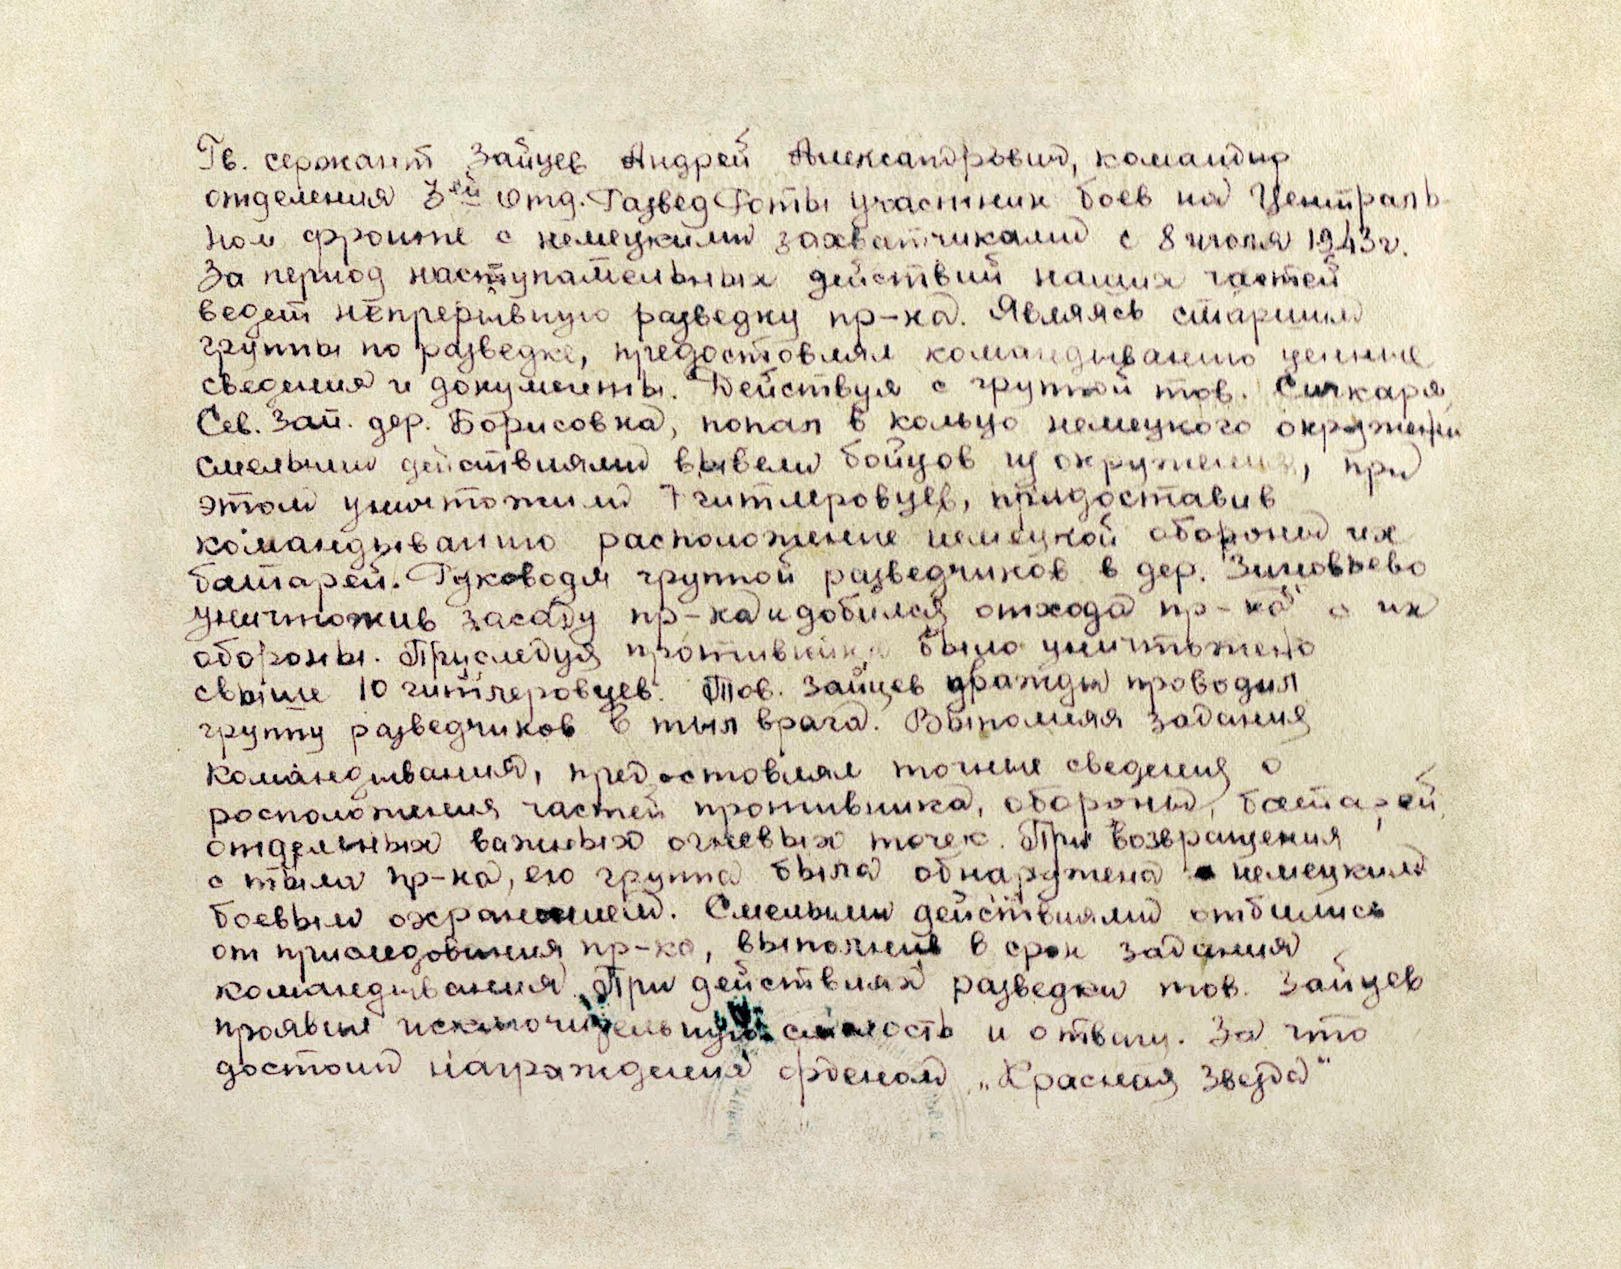 Гв. сержант Зайцев Андрей Александрович, командир
отделения 3ей Отд. Развед Роты участник боев на Централь-
ном фронте с немецкими захватчиками с 8 июля 1943г.
За период наступательных действий наших частей
ведет непрерывную разведку пр-ка. Являясь старшим
группы по разведке, предостовлял командыванию ценные
сведения и документы. Действуя с группой тов. Сичкаря
Сев. Зап. дер. Борисовка, попал в кольцо немецкого окружении
смелыми действиями вывели бойцов из окружения, при
этом уничтожили 7 гитлеровцев, придоставив
командыванию расположение немецкой обороны их
батарей. Руководя группой разведчиков в дер. Зиновьево
уничтожив засаду пр-ка и добился отхода пр-ка с их
обороны. Приследуя противника было уничтожено
свыше 10 гитлеровцев. Тов. Зайцев дважды проводил
группу разведчиков в тыл врага. Выполняя задания
командывания, предостовлял точные сведения о
росположения частей противника, обороны, батарей,
отдельных важных огневых точек. При возвращения
с тыла пр-ка, его группа была обнаружена немецким
боевым охранением. Смелыми действиями отбились
от приследования пр-ка, выполнив в срок задания
командывания. При действиях разведки тов. Зайцев
проявил исключительную смелость и отвагу. За что
достоин награждения орденом „Красная Звезда"